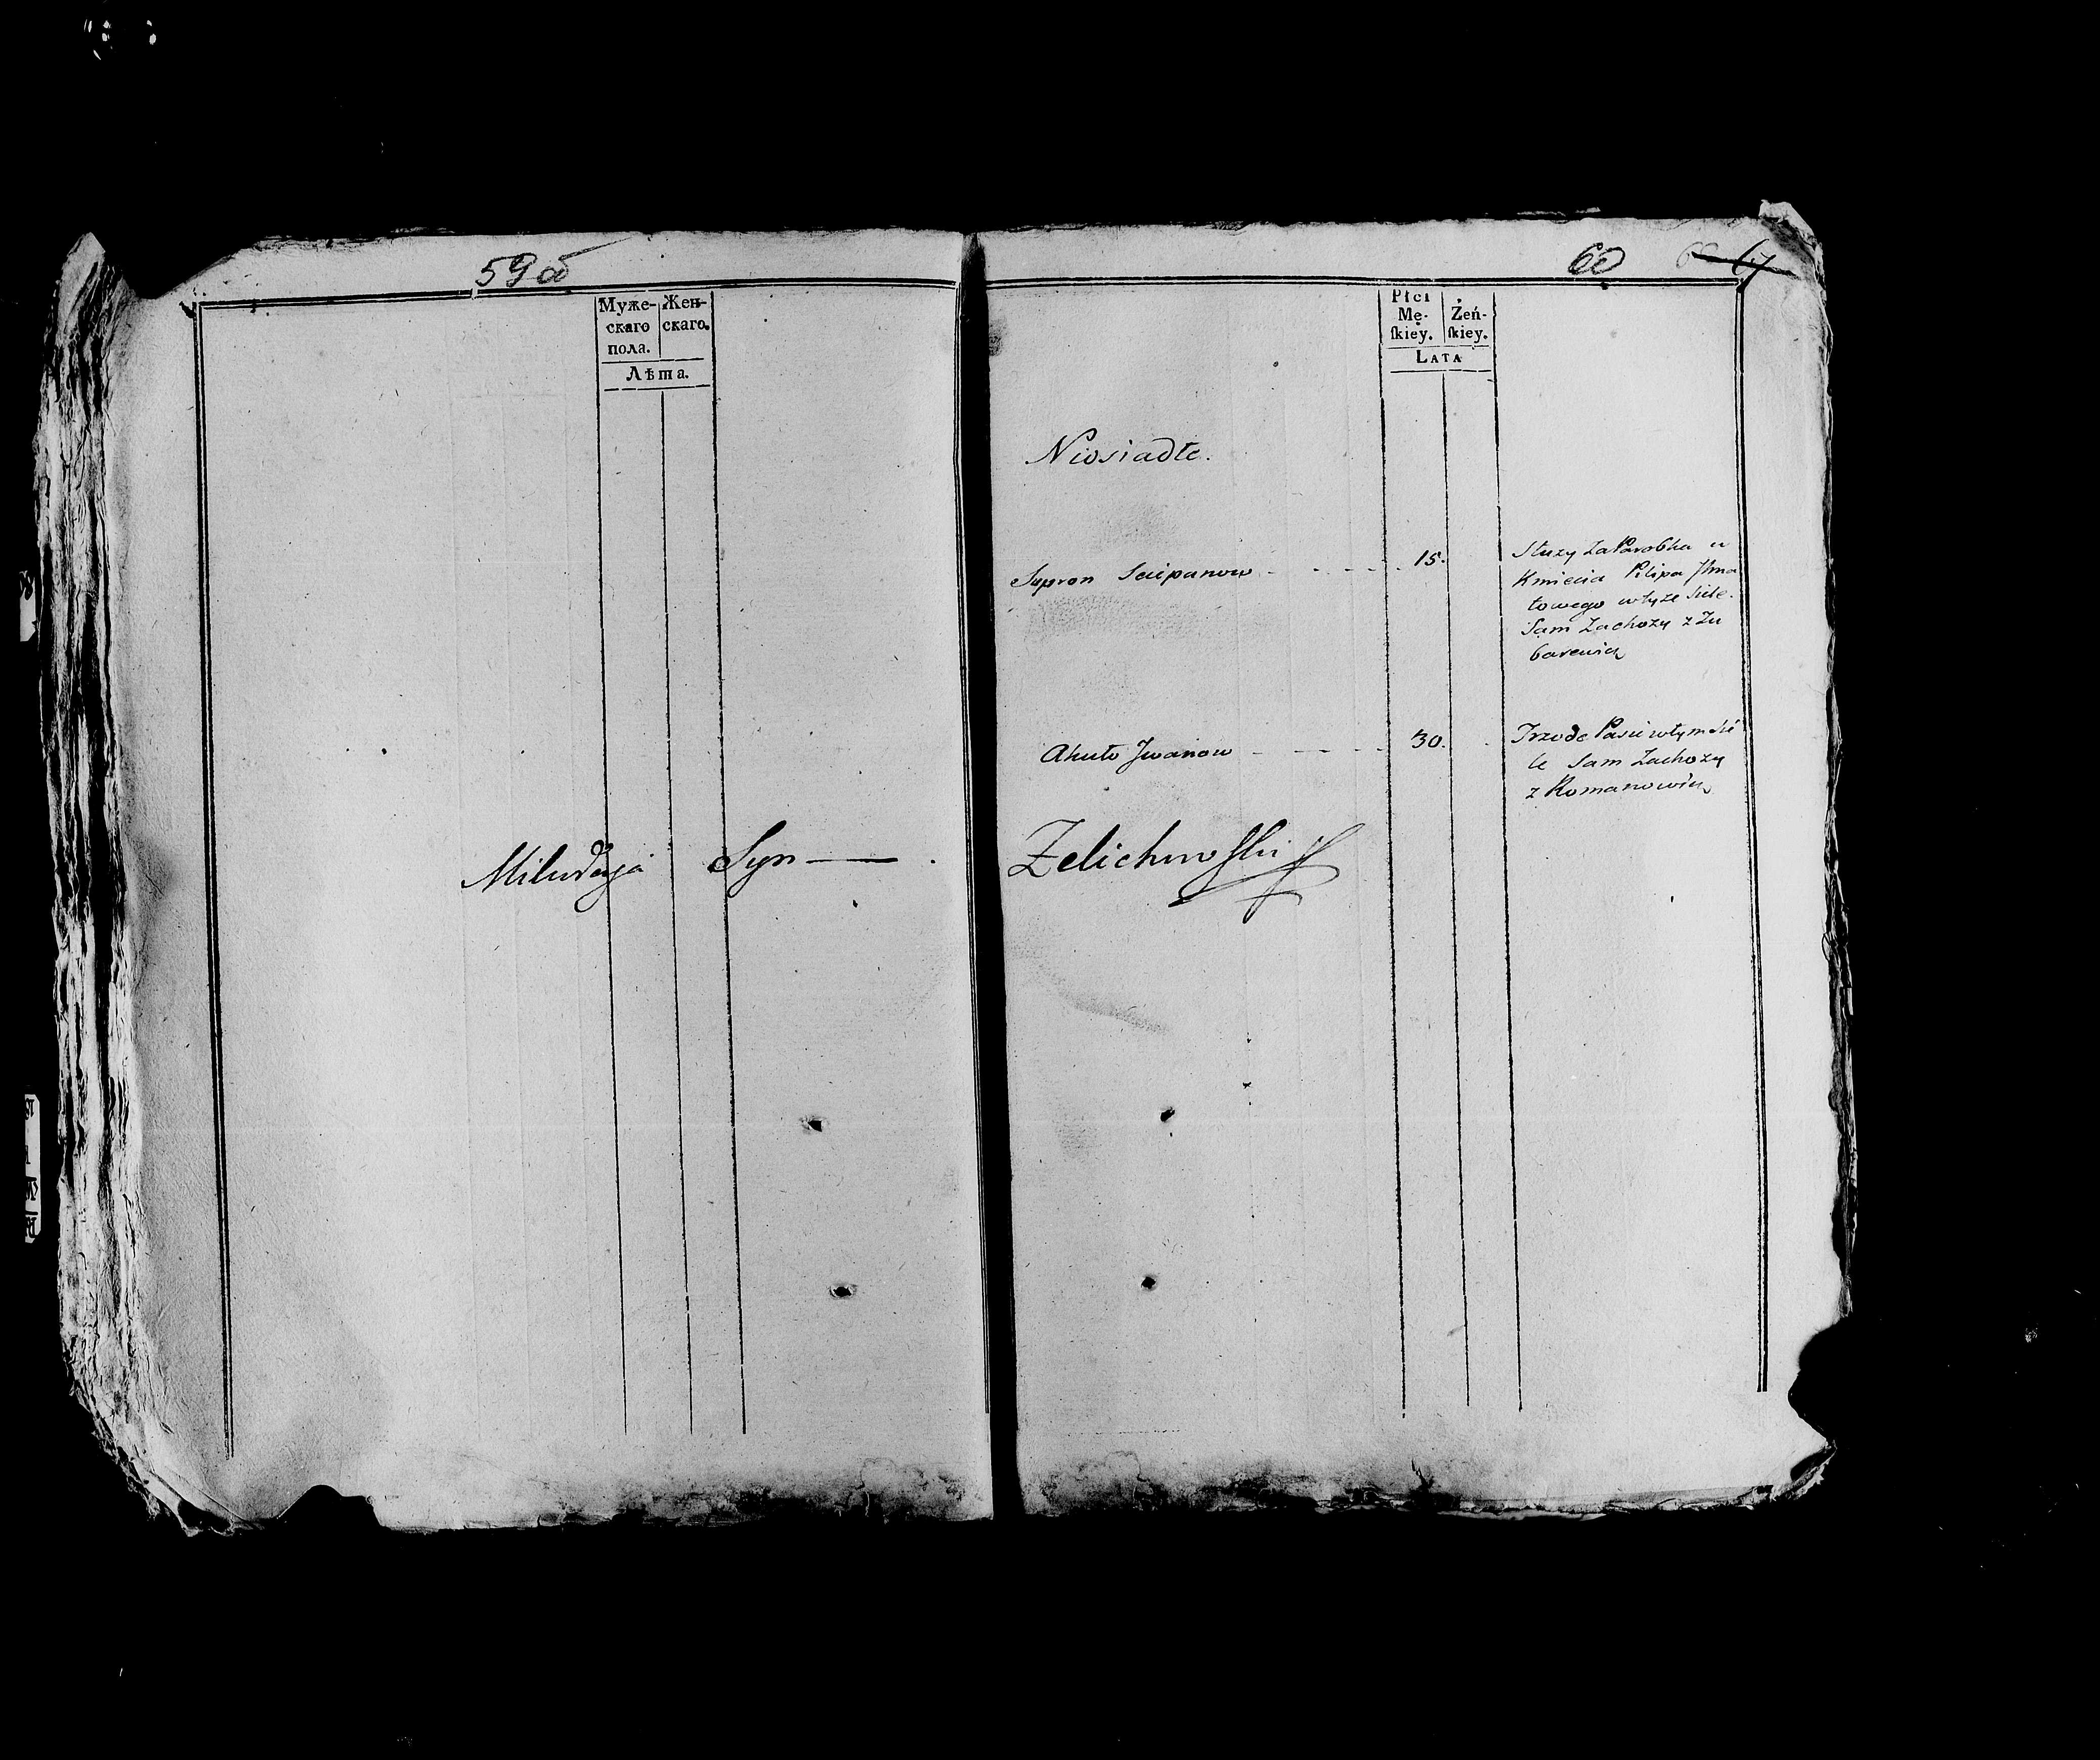 59 об
Муже-
скаго
пола.
Жен-
скаго.
Лѣта.
Syn
60
Płci
Mę-
ſkiey.
Żeń-
ſkiey.
LATA
Niosiadłe.
Supron Sciepanow 15.
Służy za Parobka u
Kmiecia Pilipa Jhna
towego wtyże siele.
Sam Zachoży z Zu
barewicz
Akuło Jwanow 30.
Trzodę Pasie wtym sie
le Sam Zachoży
z Romanowicz
Zelichowſki